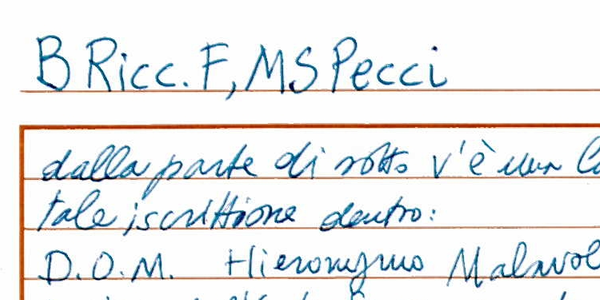 B Ricc. F, MS Pecci
dalla parte di sotto v'è una
tale iscrittione dentro:
D.O.M. Hieronymo Malavol